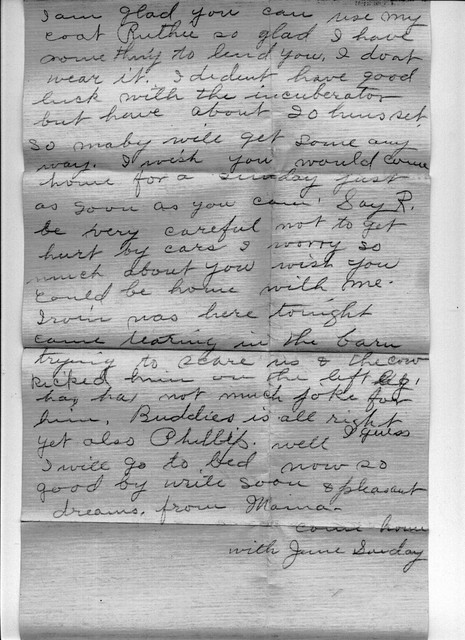 I am glad you can use my
coat Ruthie so glad I have
something to lend you, I dont
wear it. I dident have good
luck with the incuberator
but have about 20 hens set.
So maby will get some any
way. I wish you would come
home for a Sunday just
as soon as you can. Say R.
be very careful not to get
hurt by cars I worry so
much about you wish you
could be home with me.
Irvin was here tonight
came tearing in the barn
trying to scare us & the cow
kicked him on the left leg,
ha, ha, not much joke for
him. Buddies is all right
yet also Phillip. well I guess
I will go to bed now so
good by write soon & pleasant
dreams. from Mama.
come home
with June Sunday